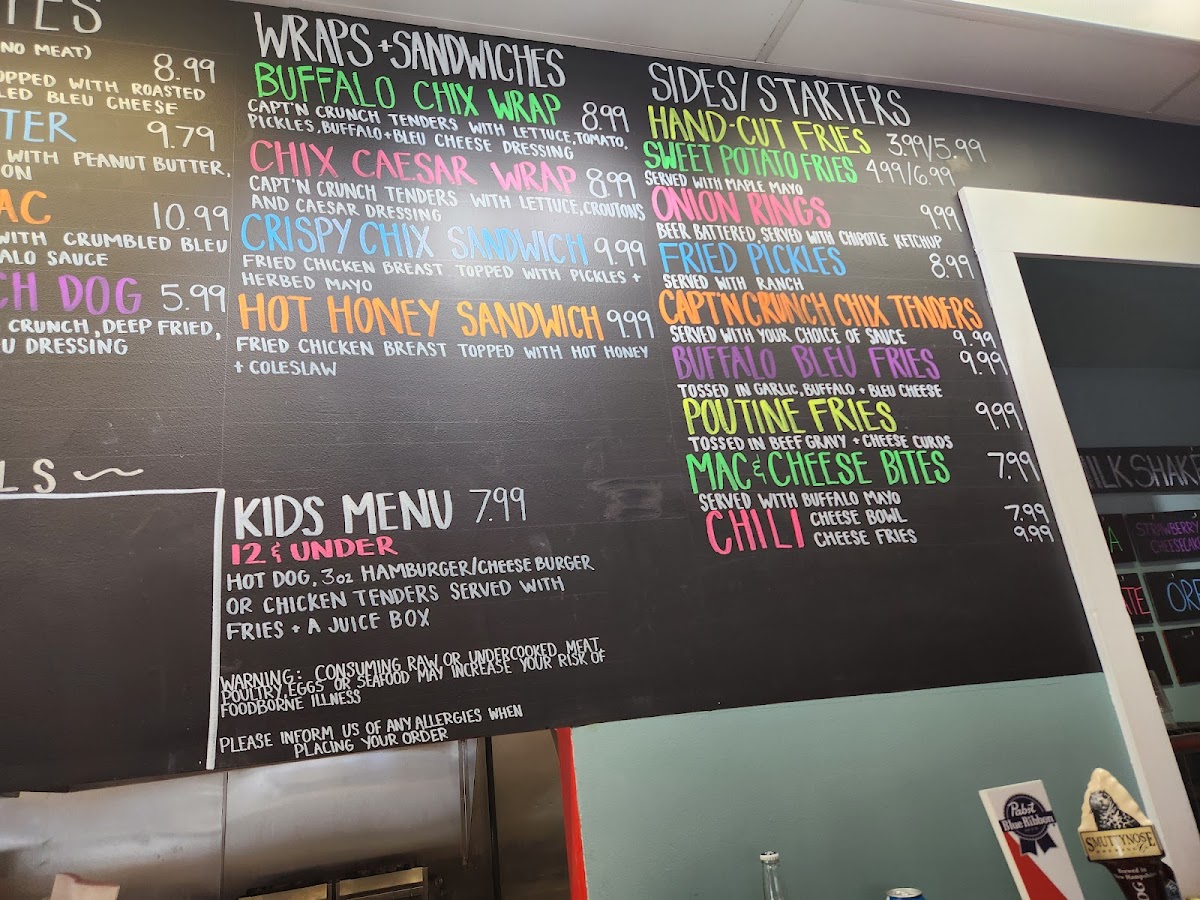 TES
NO MEAT)
8.99
OPPED WITH ROASTED
LED BLEU CHEESE
TER 9.79
WITH PEANUT BUTTER,
ON
AC 10.99
WITH CRUMBLED BLEU
ALO SAUCE
CH DOG 5.99
CRUNCH, DEEP FRIED,
U DRESSING
LS
WRAPS + SANDWICHES
BUFFALO CHIX WRAP 8.99
CAPT'N CRUNCH TENDERS WITH LETTUCE, TOMATO,
PICKLES, BUFFALO + BLEU CHEESE DRESSING
CHIX CAESAR WRAP 8.99
CAPT'N CRUNCH TENDERS WITH LETTUCE, CROUTONS
AND CAESAR DRESSING
CRISPY CHIX SANDWICH 9.99
FRIED CHICKEN BREAST TOPPED WITH PICKLES +
HERBED MAYO
HOT HONEY SANDWICH 9.99
FRIED CHICKEN BREAST TOPPED WITH HOT HONEY
+ COLESLAW
KIDS MENU 7.99
12 & UNDER
HOT DOG, 3oz HAMBURGER/CHEESEBURGER
OR CHICKEN TENDERS SERVED WITH
FRIES + A JUICE BOX
WARNING: CONSUMING RAW OR UNDERCOOKED MEAT,
POULTRY, EGGS OR SEAFOOD MAY INCREASE YOUR RISK OF
FOODBORNE ILLNESS
PLEASE INFORM US OF ANY ALLERGIES WHEN
PLACING YOUR ORDER
SIDES/STARTERS
HAND-CUT FRIES 3.99/5.99
SWEET POTATO FRIES 4.99/6.99
SERVED WITH MAPLE MAYO
ONION RINGS 9.99
BEER BATTERED, SERVED WITH CHIPOTLE KETCHUP
FRIED PICKLES 8.99
SERVED WITH RANCH
CAPT'N CRUNCH CHIX TENDERS
SERVED WITH YOUR CHOICE OF SAUCE 9.99
BUFFALO BLEU FRIES 9.99
TOSSED IN GARLIC, BUFFALO + BLEU CHEESE
POUTINE FRIES 9.99
TOSSED IN BEEF GRAVY + CHEESE CURDS
MAC & CHEESE BITES 7.99
SERVED WITH BUFFALO MAYO
CHILI CHEESE BOWL 7.99
CHEESE FRIES 9.99
ILK SHAKE
STRAWBERRY
CHEESECAK
ATE
ORE
Pabst
Blue Ribbon
SMUTTYNOSE
Brewed in
New Hampshire